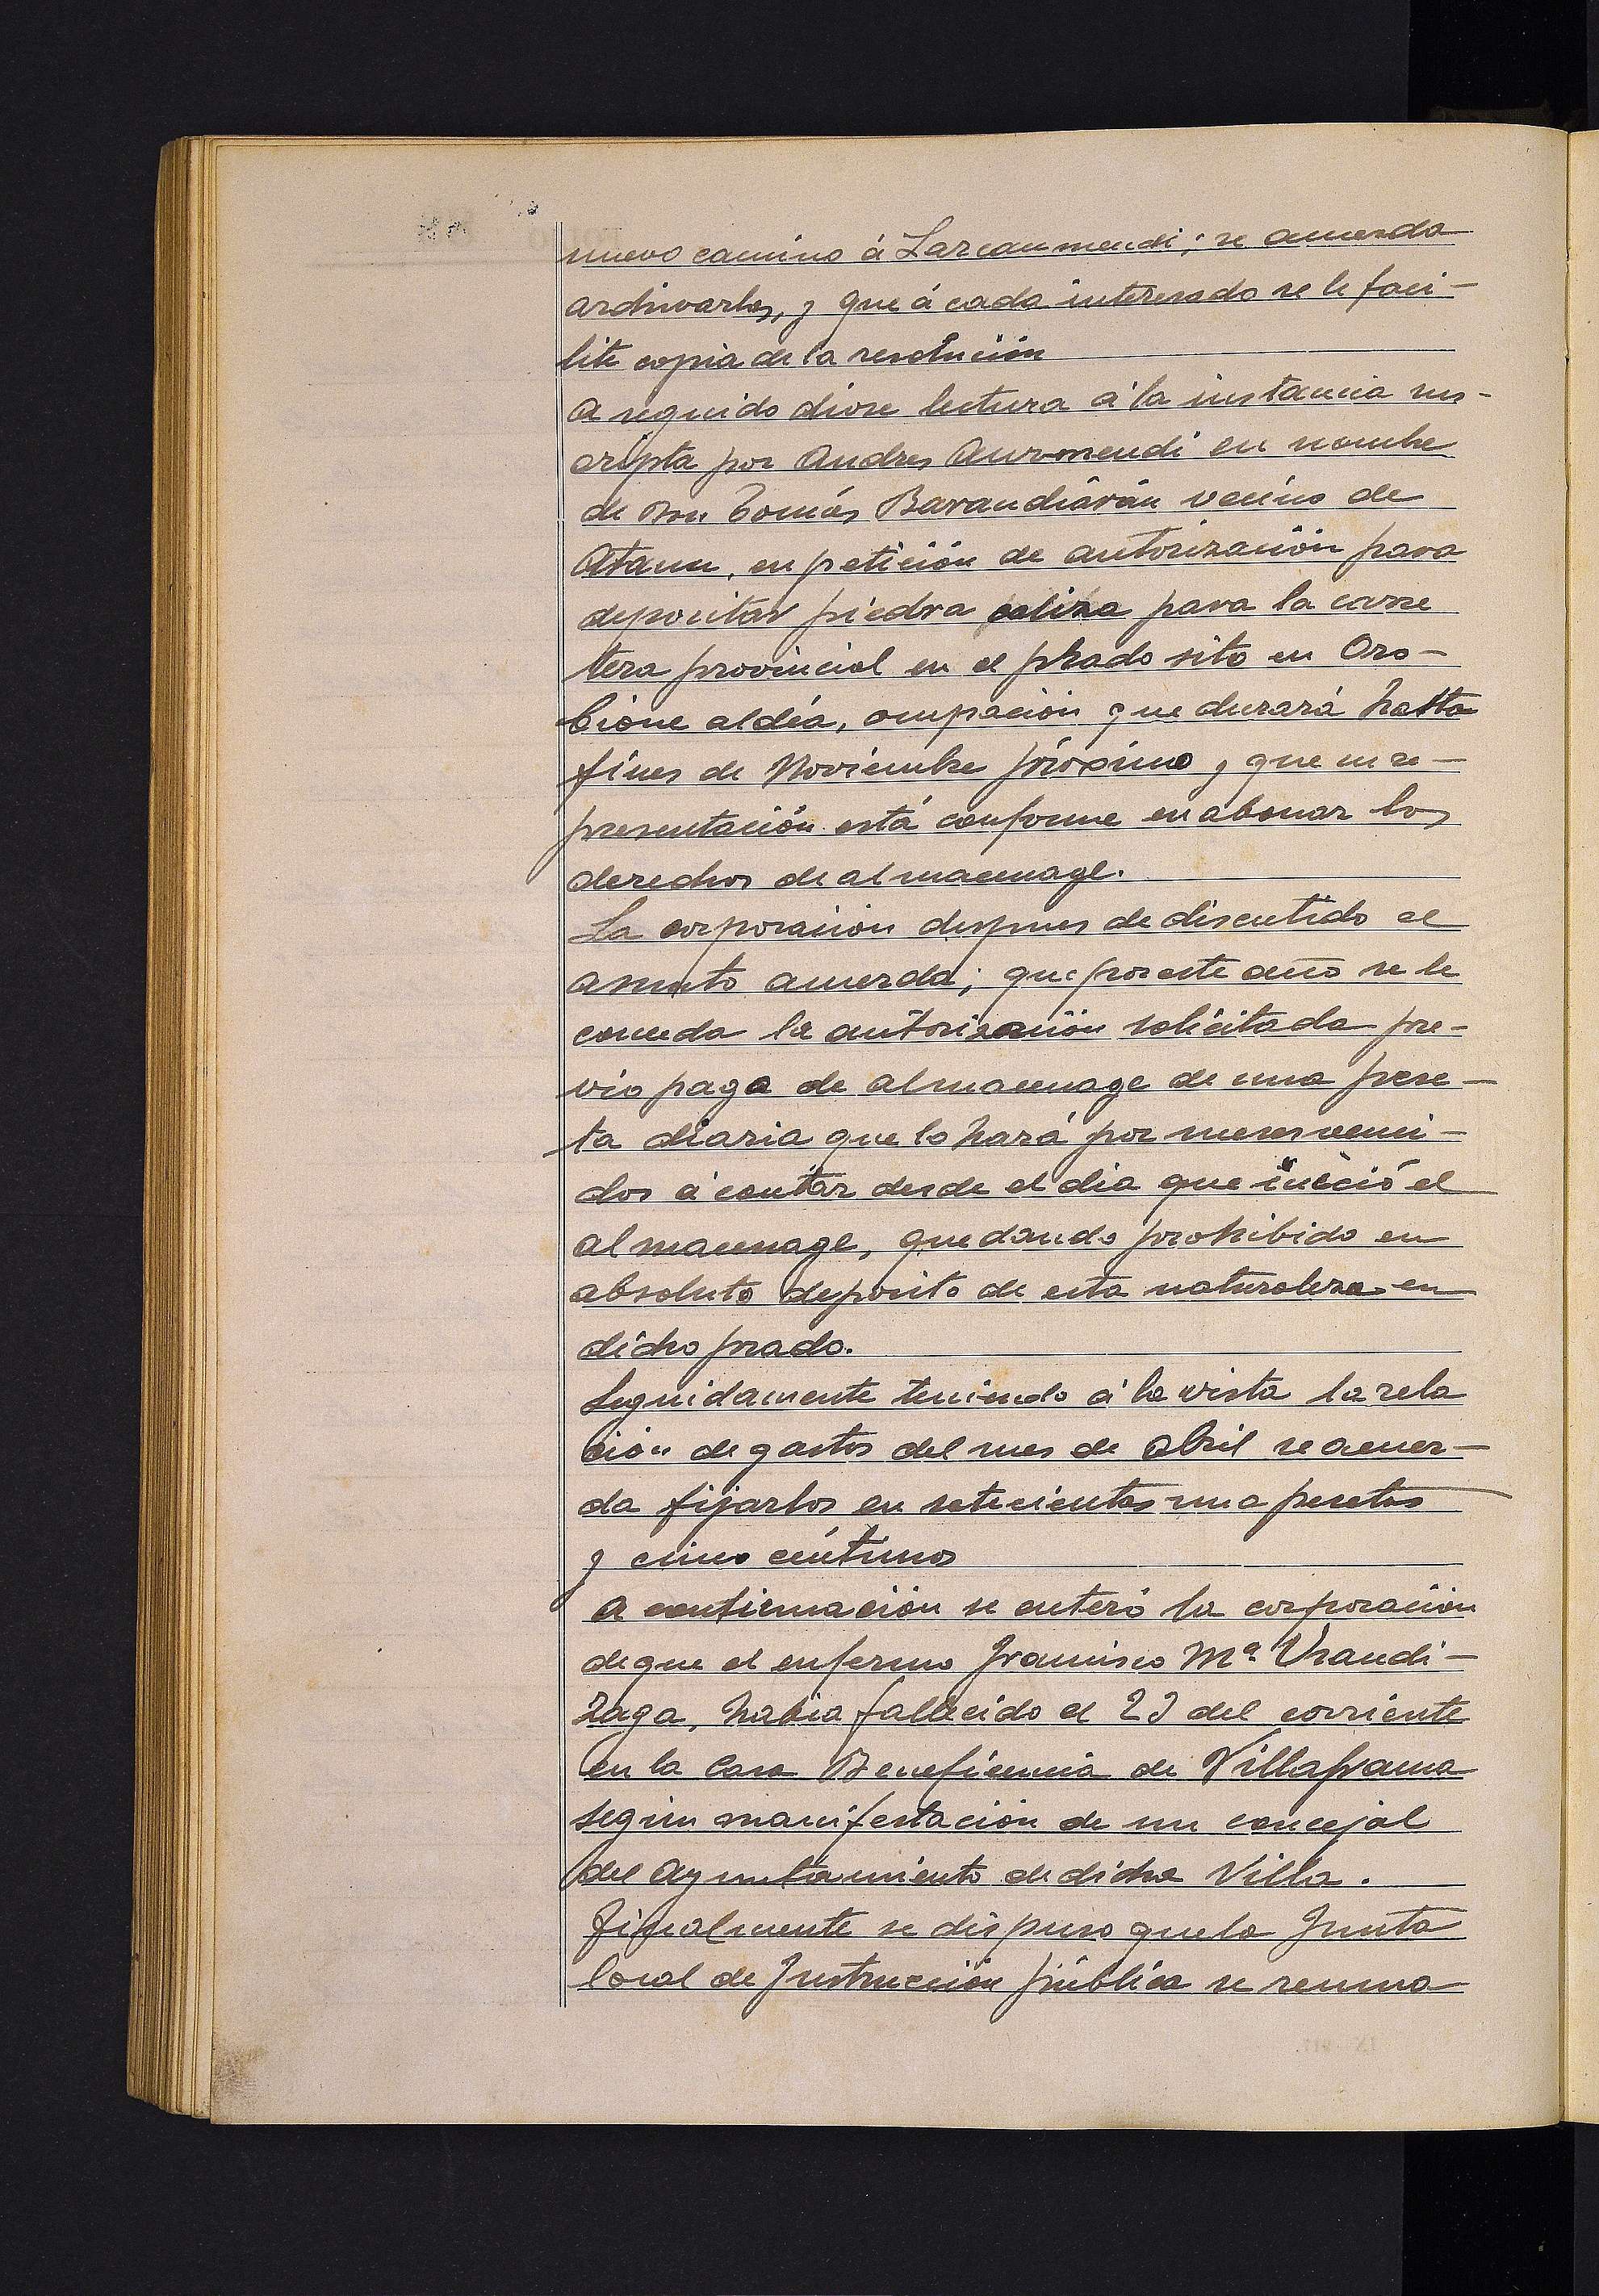 nuevo camino á Larcaumendi; se acuerda
archivarlos, y que á cada interesado se le faci-
lite copia de la resolución
A seguido dióse lectura á la instancia sus-
cripta por Andres Auzmendi en nombre
de Don Tomás Barandiarán vecino de
Ataun, en petición de autorización para
depositar piedra caliza para la carre
tera provincial en el prado sito en Oro-
bione aldea, ocupación que durará hasta
fines de Noviembre próximo y que su re-
presentación está conforme en abonar los
derechos de almacenage.
La corporación despues de discutido el
asunto acuerda; que por este año se le
conceda la autorización solicitada pre-
vio pago de almacenage de una pese-
ta diaria que lo hará por meses venci-
dos á contar desde el dia que inició el
almacenage, quedando prohibido en
absoluto deposito de esta naturaleza en
dicho prado.
Seguidamente teniendo á la vista la rela
ción de gastos del mes de Abril se acuer-
da fijarlos en setecientas una pesetas
y cinco céntimos
A continuación se enteró la corporación
de que el enfermo Francisco Mª Urandi-
zaga, habia fallecido el 23 del corriente
en la Casa Beneficencia de Villafranca
según manifestación de un concejal
del Ayuntamiento de dicha Villa.
Finalmente se dispuso que la Junta
local de Instrucción pública se reuna